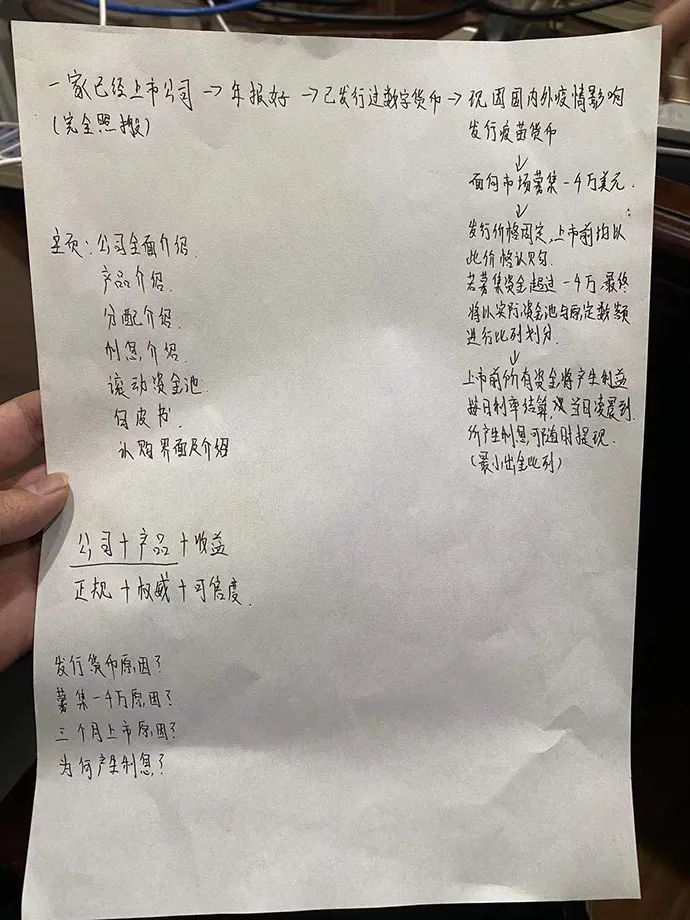 一家已经上市公司→年报好→已发行过数字货币→现因国内外疫情影响
(完全照搬)
发行疫苗货币
↓
面向市场募集一千万美元.
↓
发行价格固定,上市前均以
此价格认购.
若募集资金超过一千万,最终
将以实际资金池与原定数额
进行比列划分.
↓
上市前所有资金将产生利益
每日利率结算,次当日凌晨到.
所产生利息,可随时提现.
(最小出金比列)
主页:公司全面介绍.
产品介绍.
分配介绍.
利息,介绍.
滚动资金池.
白皮书.
认购界面及介绍
公司+产品+收益
正规+权威+可信度.
发行货币原因?
募集一千万原因?
三个月上市原因?
为何产生利息?